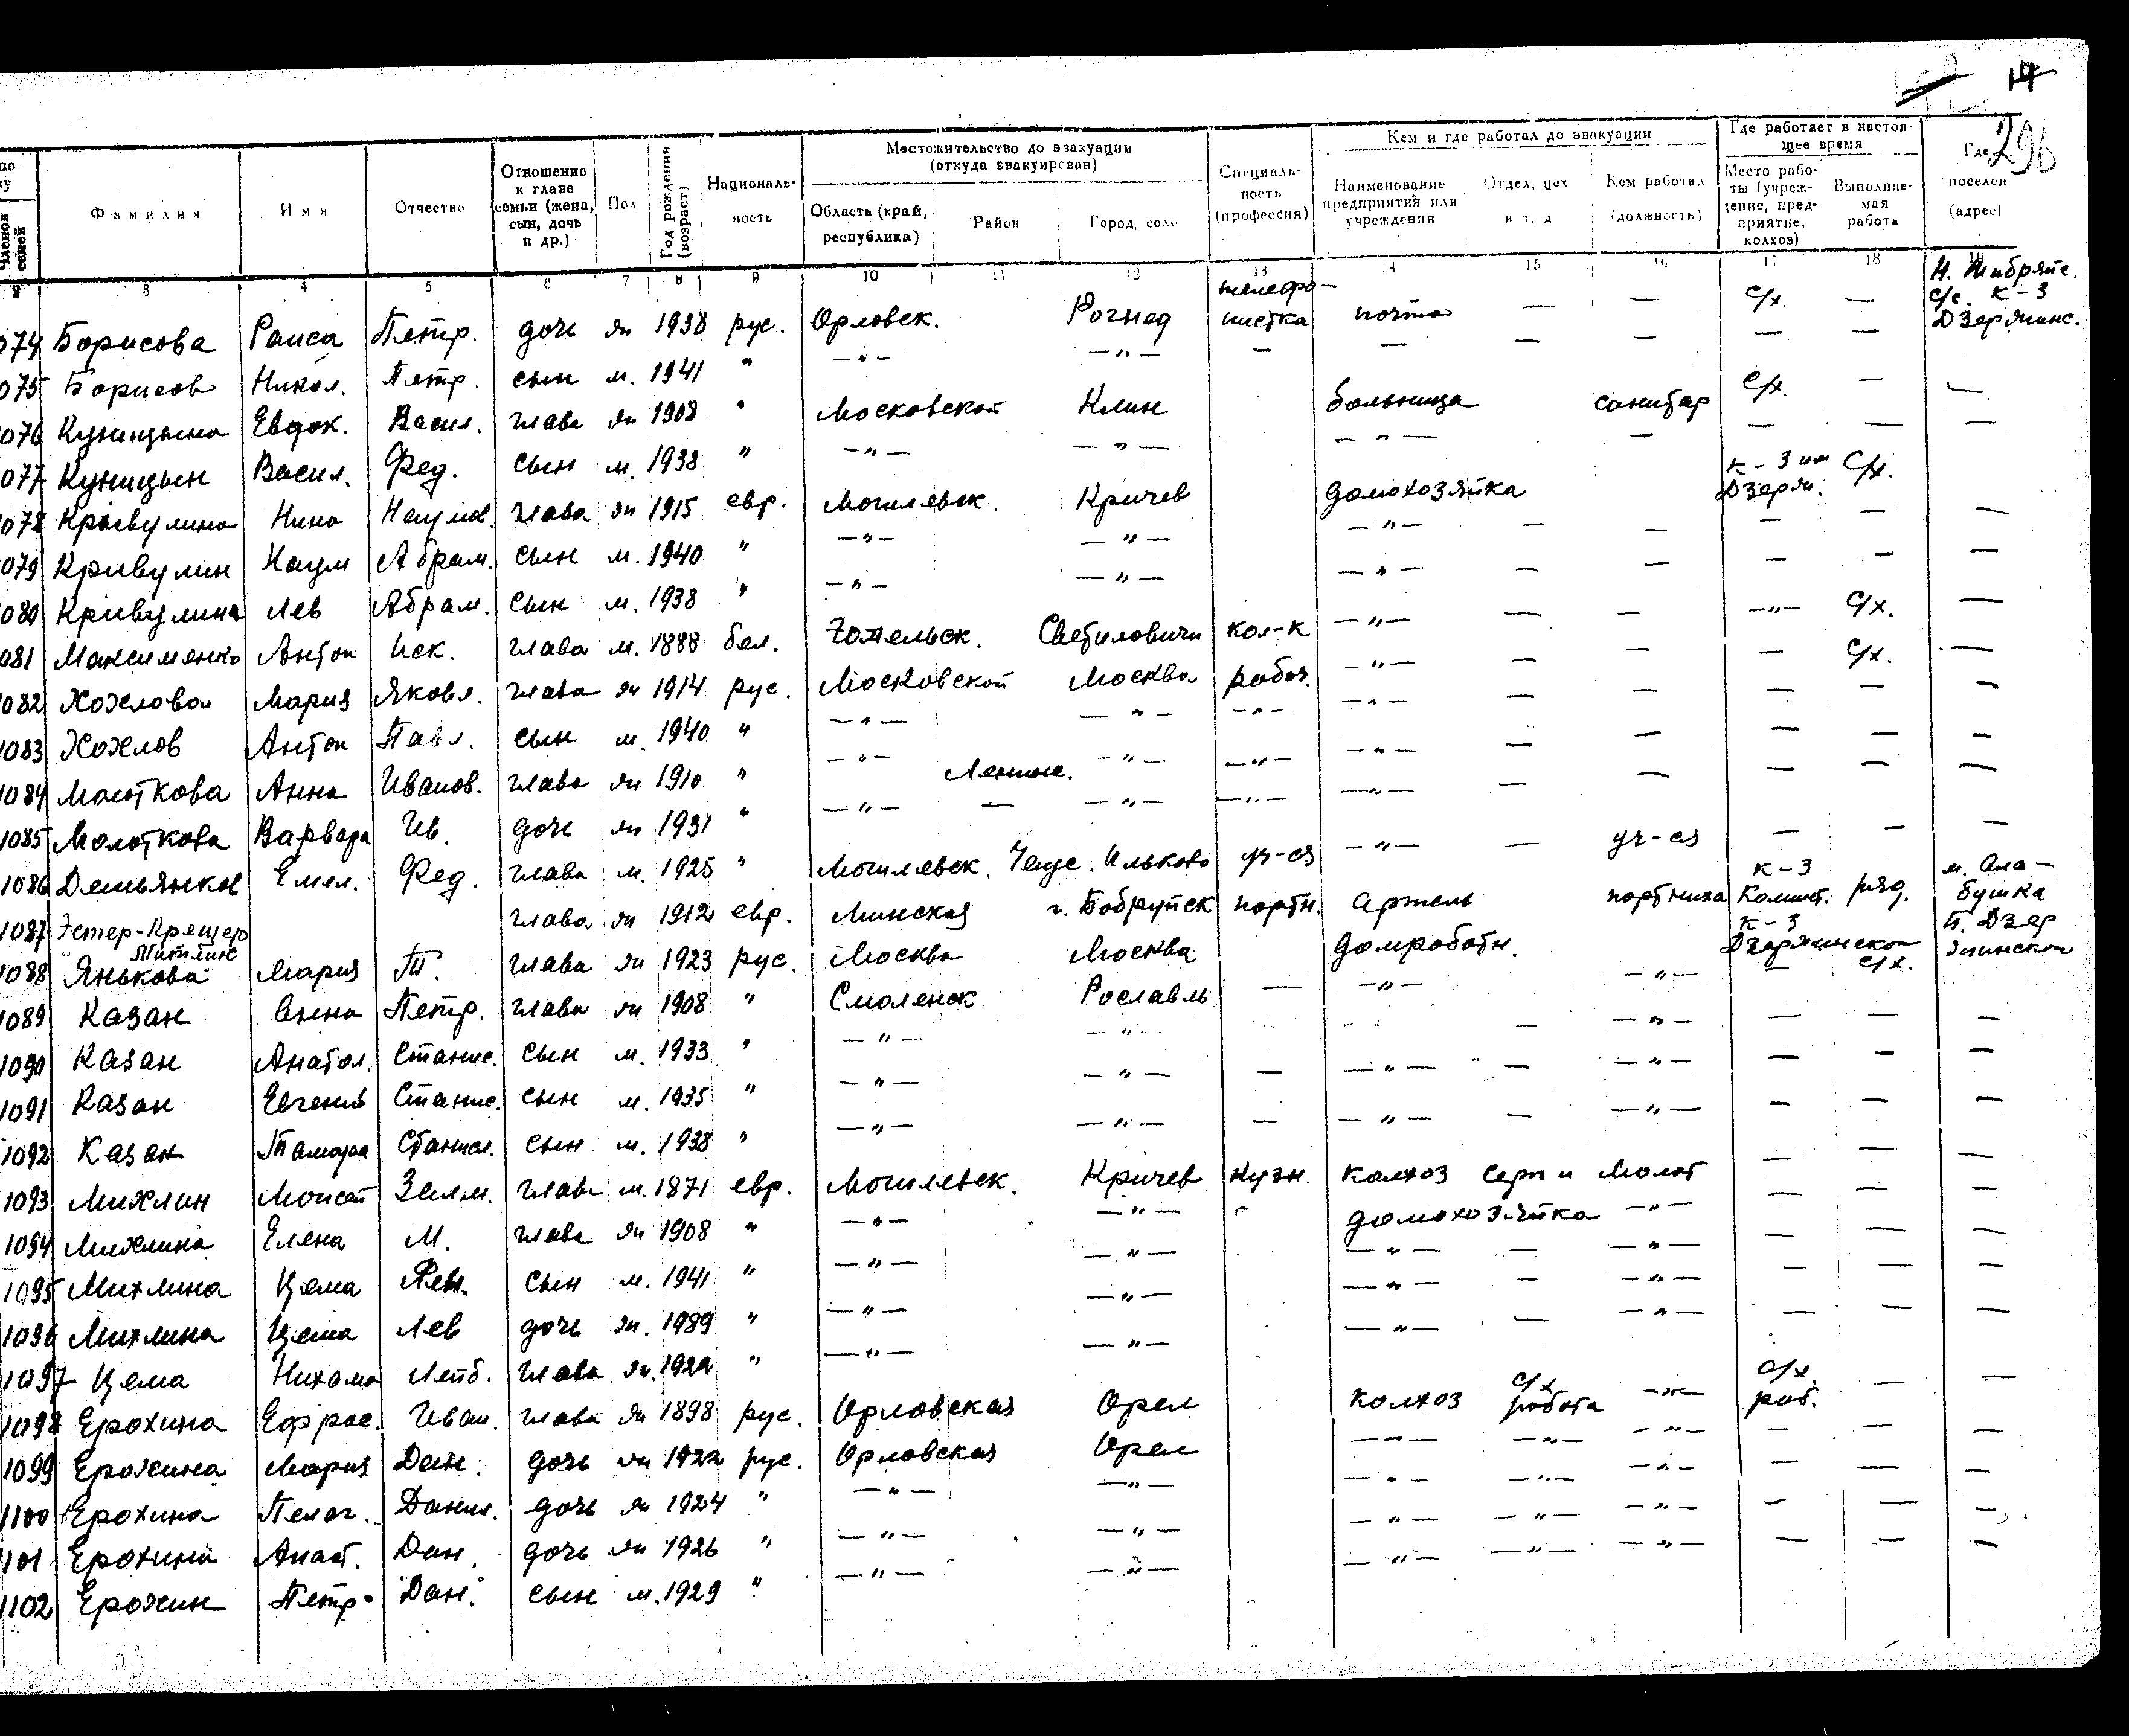 14
296
по
Членов семей
Фамилия
Имя
Отчество
Отношение к главе семьи (жена, сын, дочь и др.)
Пол
Год рождения (возраст)
Националь-ность
Местожительство до эвакуации (откуда эвакуирован)
Область (край, республика)
Район
Город, село
Специаль-ность (профессия)
Кем и где работал до эвакуации
Наименование предприятия или учреждения
Отдел, цех и т. д
Кем работал (должность)
Где работает в настоя-щее время
Место рабо-ты (учреж-дение, пред-приятие, колхоз)
Выполняе-мая работа
Где поселен (адрес)
2 3 4 5 6 7 8 9 10 11 12 13 14 15 16 17 18
074 Борисова Раиса Петр. дочь ж 1938 рус. Орловск. Рогнед телефо-нистка почта — — с/х. — с/с. к-3 Дзержинс.
075 Борисов Никол. Петр. сын м. 1941 " —"— —"— — — — — — —
076 Куницына Евдок. Васил. глава ж 1908 " Московской Клин больница санитар с/х. — —
077 Куницын Васил. Фед. сын м. 1938 " —"— —"— —"— — — — —
078 Кривулина Нина Наумов. глава ж 1915 евр. Могилевск. Кричев домохозяйка к-3 им Дзерж. с/х.
079 Кривулин Наум Абрам. сын м. 1940 " —"— —"— —"— — — — — —
080 Кривулина Лев Абрам. сын м. 1938 " —"— —"— —"— — — — — —
081 Максименко Антон Иск. глава м. 1888 бел. Гомельск. Светиловичи кол-к —"— — — —"— с/х. —
082 Хохлова Мария Яковл. глава ж 1914 рус. Московской Москва рабоч. —"— — — — с/х. —
083 Хохлов Антон Павл. сын м. 1940 " —"— —"— —"— —"— — — — — —
1084 Молоткова Анна Иванов. глава ж 1910 " —"— Ленинс. —"— —"— —"— — — — — —
1085 Молоткова Варвара Ив. дочь ж 1931 " —"— — —"— —"— —"— — — — — —
1086 Демьянков Емел. Фед. глава м. 1925 " Могилевск. Чаус. Ильково уч-ся —"— — уч-ся — — —
1087 Эстер- глава ж 1912 евр. Минская г. Бобруйск портн. Артель портниха к-3 Коминт. ряд. м. Ала-бушка
1088 Янькова Мария П. глава ж 1923 рус. Москва Москва домработн. к-3 Дзержинского с/х. П. Дзер жинской
1089 Казан Анна Петр. глава ж 1908 " Смоленск Рославль — —"— —"— —
1090 Казан Анатол. Станис. сын м. 1933 " —"— —"— — —"— — — —
1091 Казан Евгений Станис. сын м. 1935 " —"— —"— — —"— — —"— — — —
1092 Казан Тамара Станисл. сын м. 1938 " —"— —"— — —"— — —"— — — —
1093 Михлин Моисей Залм. глава м. 1871 евр. Могилевск. Кричев кузн. колхоз Серп и Молот — — —
1094 Михлина Елена М. глава ж 1908 " —"— —"— домохозяйка —"— — — —
1095 Михлина Цема Лев. сын м. 1941 " —"— —"— —"— — —"— — — —
1096 Михлина Цема Лев дочь ж. 1989 " —"— —"— —"— — —"— — — —
1097 Цема Нихама Лейб. глава ж. 1922 " —"— —"— —"— — —"— — — —
1098 Ерохина Ефрос. Иван. глава ж 1898 рус. Орловская Орел колхоз с/х работа —"— с/х. раб. — —
1099 Ерохина Мария Дан. дочь ж 1922 рус. Орловская Орел —"— —"— —"— — — —
1100 Ерохина Пелаг. Данил. дочь ж 1924 " —"— —"— —"— —"— —"— — — —
1101 Ерохина Анаст. Дан. дочь ж 1926 " —"— —"— —"— —"— —"— — — —
1102 Ерохин Петр. Дан. сын м. 1929 " —"— —"— —"— —"— —"— — — —